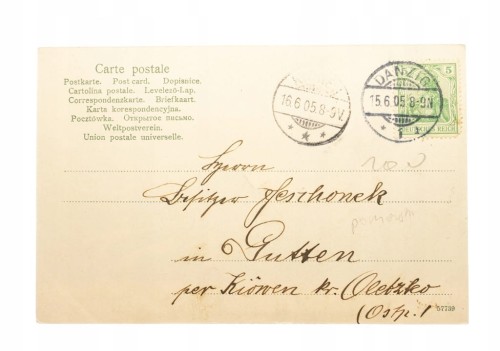 Carte postale
Postkarte. Post card. Dopisnice.
Cartolina postale. Levelező-Lap.
Correspondenzkarte. Briefkaart.
Karta korespondencyjna.
Pocztówka. Открытое письмо.
Weltpostverein.
Union postale universelle.
16.6.05.8-9V.
DANZIG
15.6.05.8-9N
1
5
DEUTSCHES REICH
Herrn
Besitzer Jeschonek
in Gutten
per Kiöwen kr. Oletzko
(Ostp.)
57739